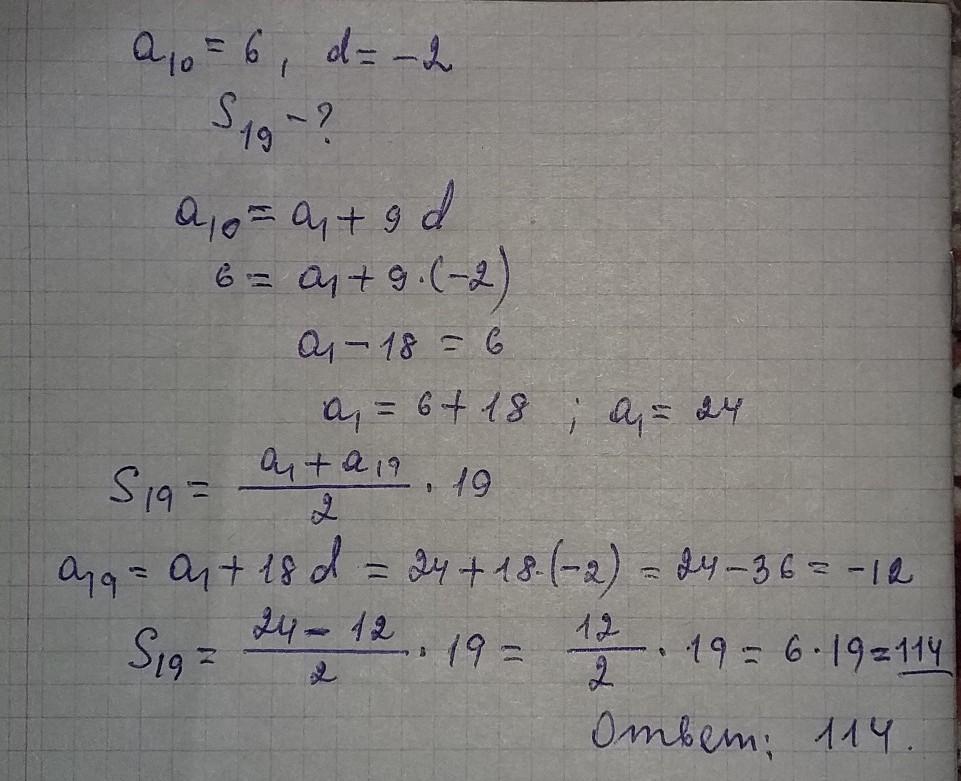 a₁₀ = 6, d = -2
S₁₉ - ?
a₁₀ = a₁ + 9d
6 = a₁ + 9·(-2)
a₁ - 18 = 6
a₁ = 6 + 18 ; a₁ = 24
S₁₉ = (a₁ + a₁₉)/2 · 19
a₁₉ = a₁ + 18d = 24 + 18·(-2) = 24 - 36 = -12
S₁₉ = (24 - 12)/2 · 19 = 12/2 · 19 = 6 · 19 = 114
Ответ: 114.